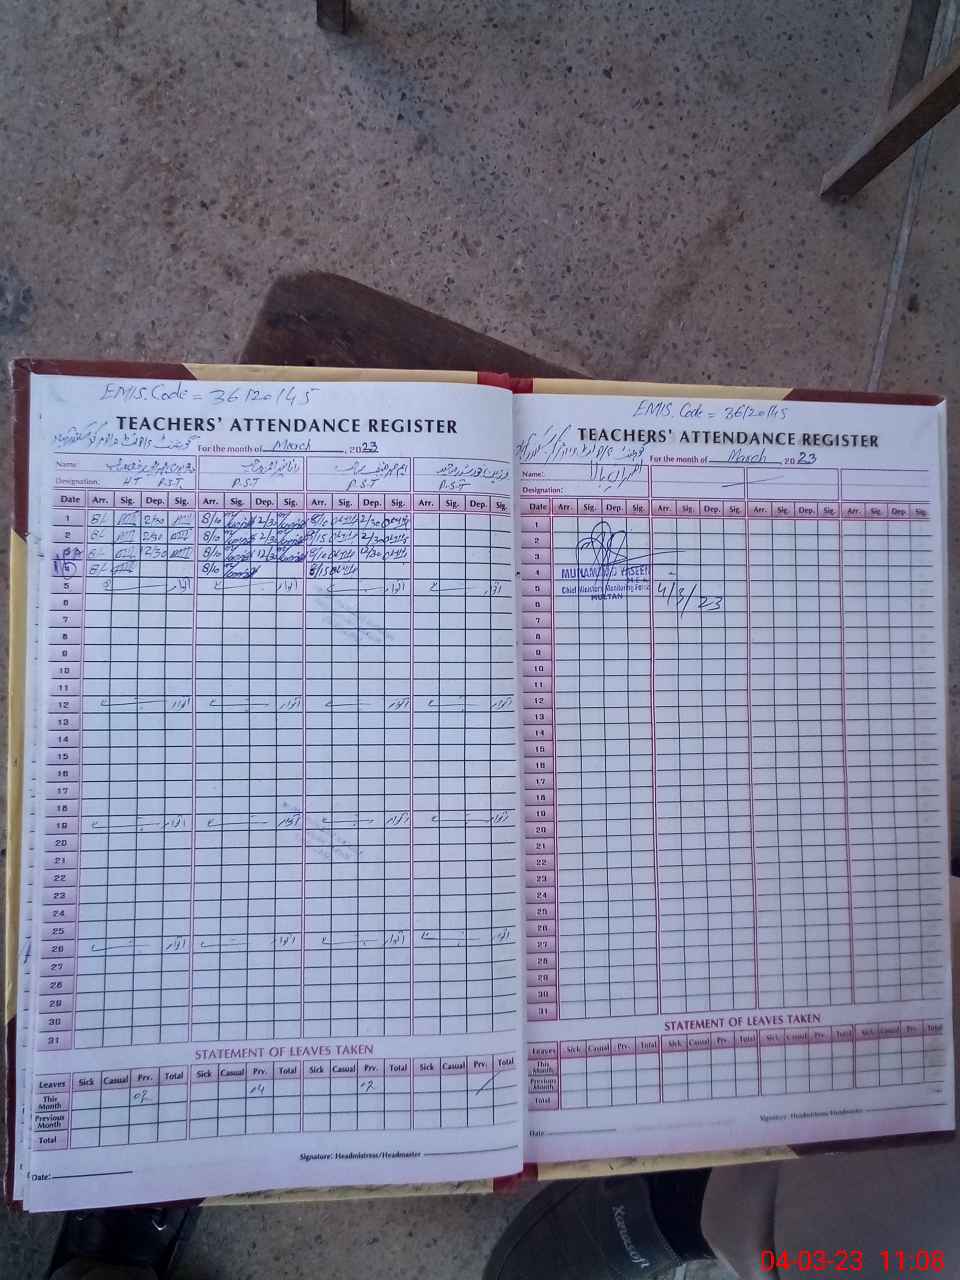 EMIS. Code = 36120145
TEACHERS' ATTENDANCE REGISTER
For the month of March, 2023
Name:
Designation: H.T P.S.T P.S.T P.S.T P.S.T
Date Arr. Sig. Dep. Sig. Arr. Sig. Dep. Sig. Arr. Sig. Dep. Sig. Arr. Sig. Dep. Sig.
1 8/ 2/30 8/10 2/30 8/10 2/30
2 8/ 2/30 8/15 2/30 8/15 2/30
3 8/ 12/30 8/10 12/30 8/10 12/30
4 8/ 8/10 8/15
5 اتوار اتوار اتوار اتوار
6
7
8
9
10
11
12 اتوار اتوار اتوار اتوار
13
14
15
16
17
18
19 اتوار اتوار اتوار اتوار
20
21
22
23
24
25
26 اتوار اتوار اتوار اتوار
27
28
29
30
31
STATEMENT OF LEAVES TAKEN
Leaves Sick Casual Prv. Total Sick Casual Prv. Total Sick Casual Prv. Total Sick Casual Prv. Total
This Month 02 04 02
Previous Month
Total
Signature: Headmistress/Headmaster
Date:
EMIS. Code = 36120145
TEACHERS' ATTENDANCE REGISTER
For the month of March 2023
Name:
Designation:
Date Arr. Sig. Dep. Sig. Arr. Sig. Dep. Sig. Arr. Sig. Dep. Sig. Arr. Sig. Dep. Sig.
1
2
3
4 MUHAMMAD YASEEN
M.E.A
5 Chief Ministers Monitoring Force 4/3/23
MULTAN
6
7
8
9
10
11
12
13
14
15
16
17
18
19
20
21
22
23
24
25
26
27
28
29
30
31
STATEMENT OF LEAVES TAKEN
Leaves Sick Casual Prv. Total Sick Casual Prv. Total Sick Casual Prv. Total Sick Casual Prv. Total
This Month
Previous Month
Total
Signature: Headmistress/Headmaster
Date
Karosoft
04-03-23 11:08